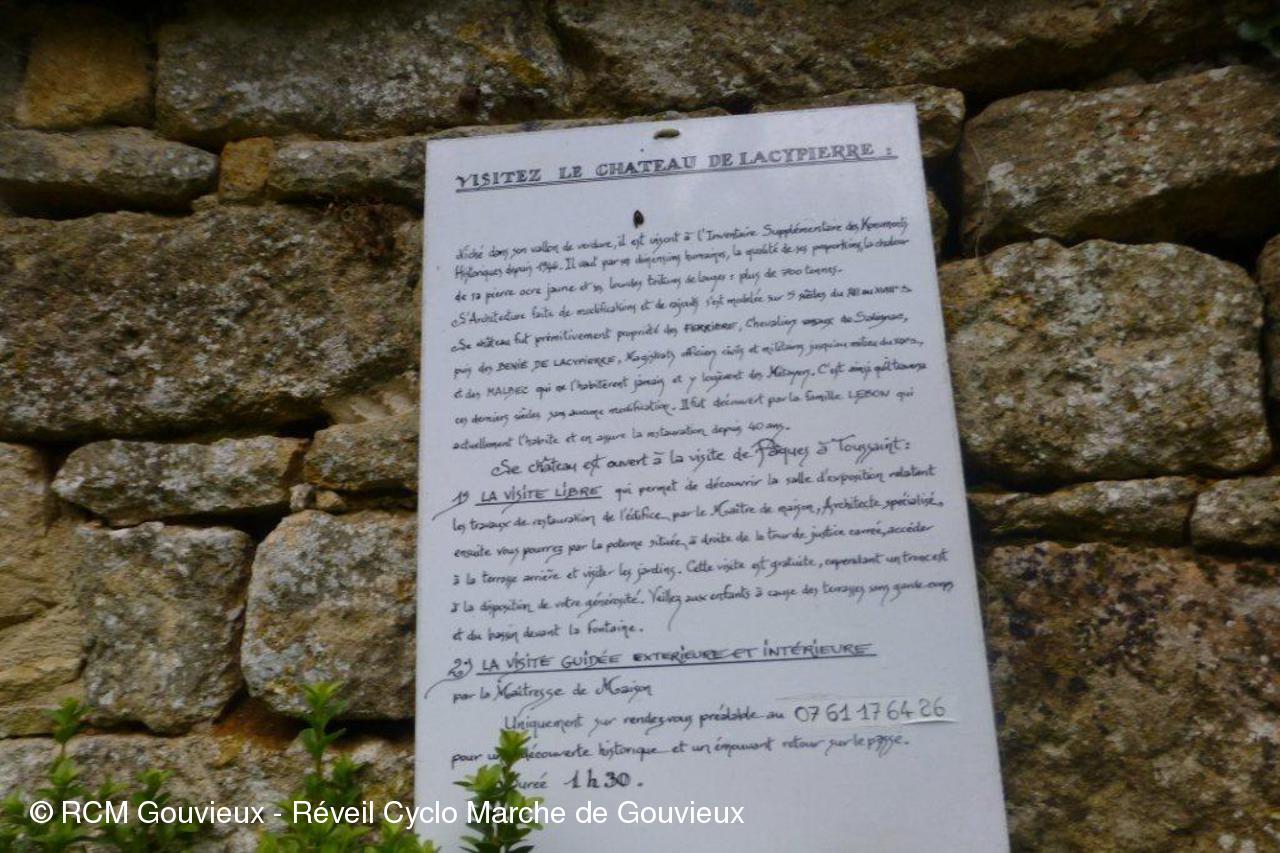 VISITEZ LE CHATEAU DE LACYPIERRE :
Niché dans son vallon de verdure, il est inscrit à l'Inventaire Supplémentaire des Monuments
Historiques depuis 1946. Il vaut par ses dimensions humaines, la qualité de ses proportions, la chaleur
de sa pierre ocre jaune et ses lourdes toitures de lauzes : plus de 700 tonnes.
S'Architecture faite de modifications et de rajouts s'est modelée sur 5 siècles du au XVIII
Se château fut primitivement propriété des FERRIERE, Chevaliers de Salignac,
puis des BENIE DE LACYPIERRE, Magistrats officiers civils et militaires jusqu'au milieu du
et des MALBEC qui ne l'habitèrent jamais et y logèrent des Métayers. C'est ainsi qu'il traversa
ces derniers siècles sans aucune modification. Il fut découvert par la famille LEBON qui
actuellement l'habite et en assure la restauration depuis 40 ans.
Se château est ouvert à la visite de Pâques à Toussaint :
1) LA VISITE LIBRE qui permet de découvrir la salle d'exposition relatant
les travaux de restauration de l'édifice par le Maître de maison, Architecte spécialisé,
ensuite vous pourrez par la poterne située à droite de la tour de justice carrée, accéder
à la terrasse arrière et visiter les jardins. Cette visite est gratuite, cependant un tronc est
à la disposition de votre générosité. Veillez aux enfants à cause des terrasses sans garde-corps
et du bassin devant la Fontaine.
2) LA VISITE GUIDÉE EXTERIEURE ET INTÉRIEURE
par la Maîtresse de Maison
Uniquement sur rendez-vous préalable au 07 61 17 64 26
pour découverte historique et un émouvant retour sur le passé.
Durée 1h30.
© RCM Gouvieux - Réveil Cyclo Marche de Gouvieux